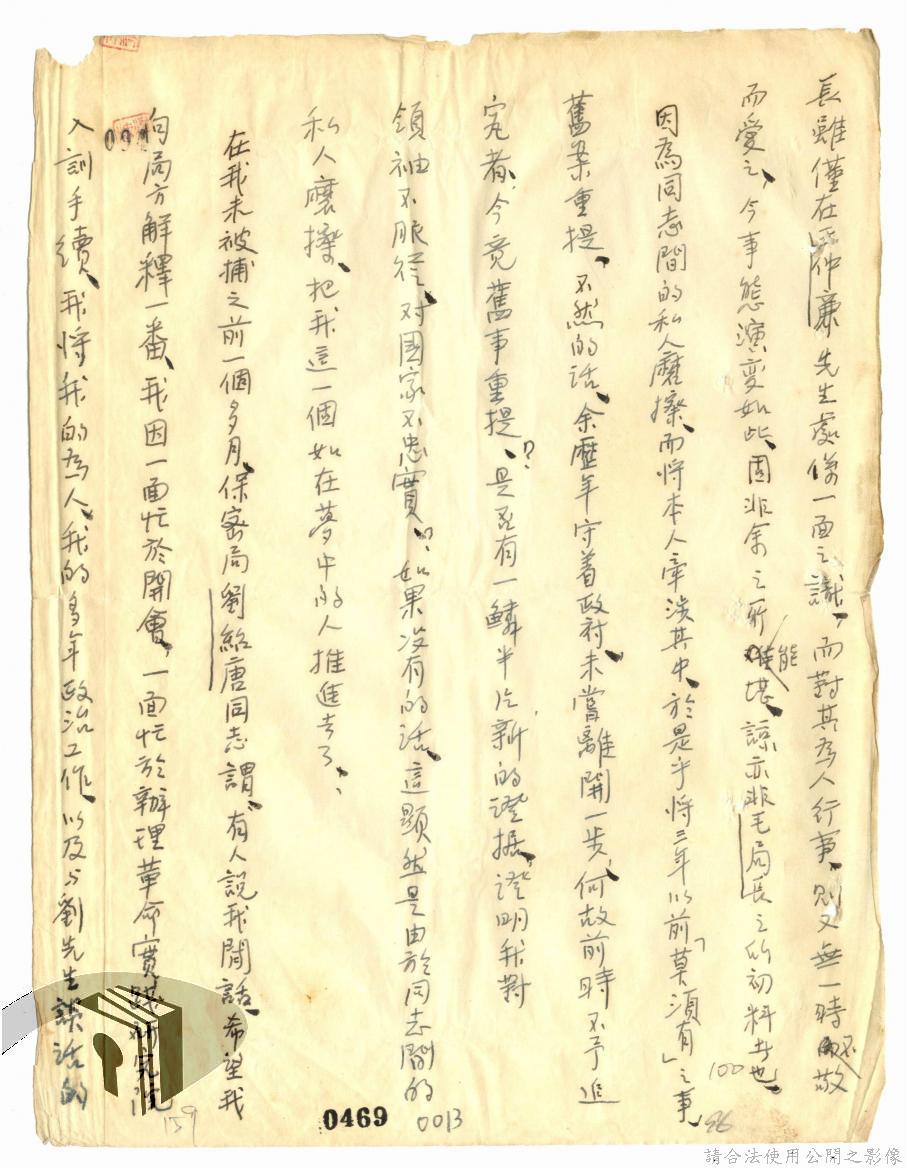 長雖僅在仲廉先生處僅一面之識，而對其為人行事，則又無一時不敬
而愛之，今事態演變如此，固非余之所能堪，諒亦非毛局長之所初料者也，
因為同志間的私人磨擦，而將本人牽涉其中，於是乎將三年以前「莫須有」之事
舊案重提，不然的話，余歷年守着政府未嘗離開一步，何故前時不予追
究者，今竟舊事重提，？是否有一鱗半片新的證据，證明我對
領袖不服從，对國家不忠實，？如果没有的話，這顯然是由於同志間的
私人磨擦，把我這一個如在夢中的人推進去了，
在我未被捕之前一個多月，保密局劉紹唐同志謂，有人說我閒話，希望我
向局方解釋一番，我因一面忙於開會，一面忙於辦理革命實踐研究院
入訓手續，我将我的為人，我的多年政治工作，以及与劉先生談話的
094
100
96
159
0469
0013
請合法使用公開之影像